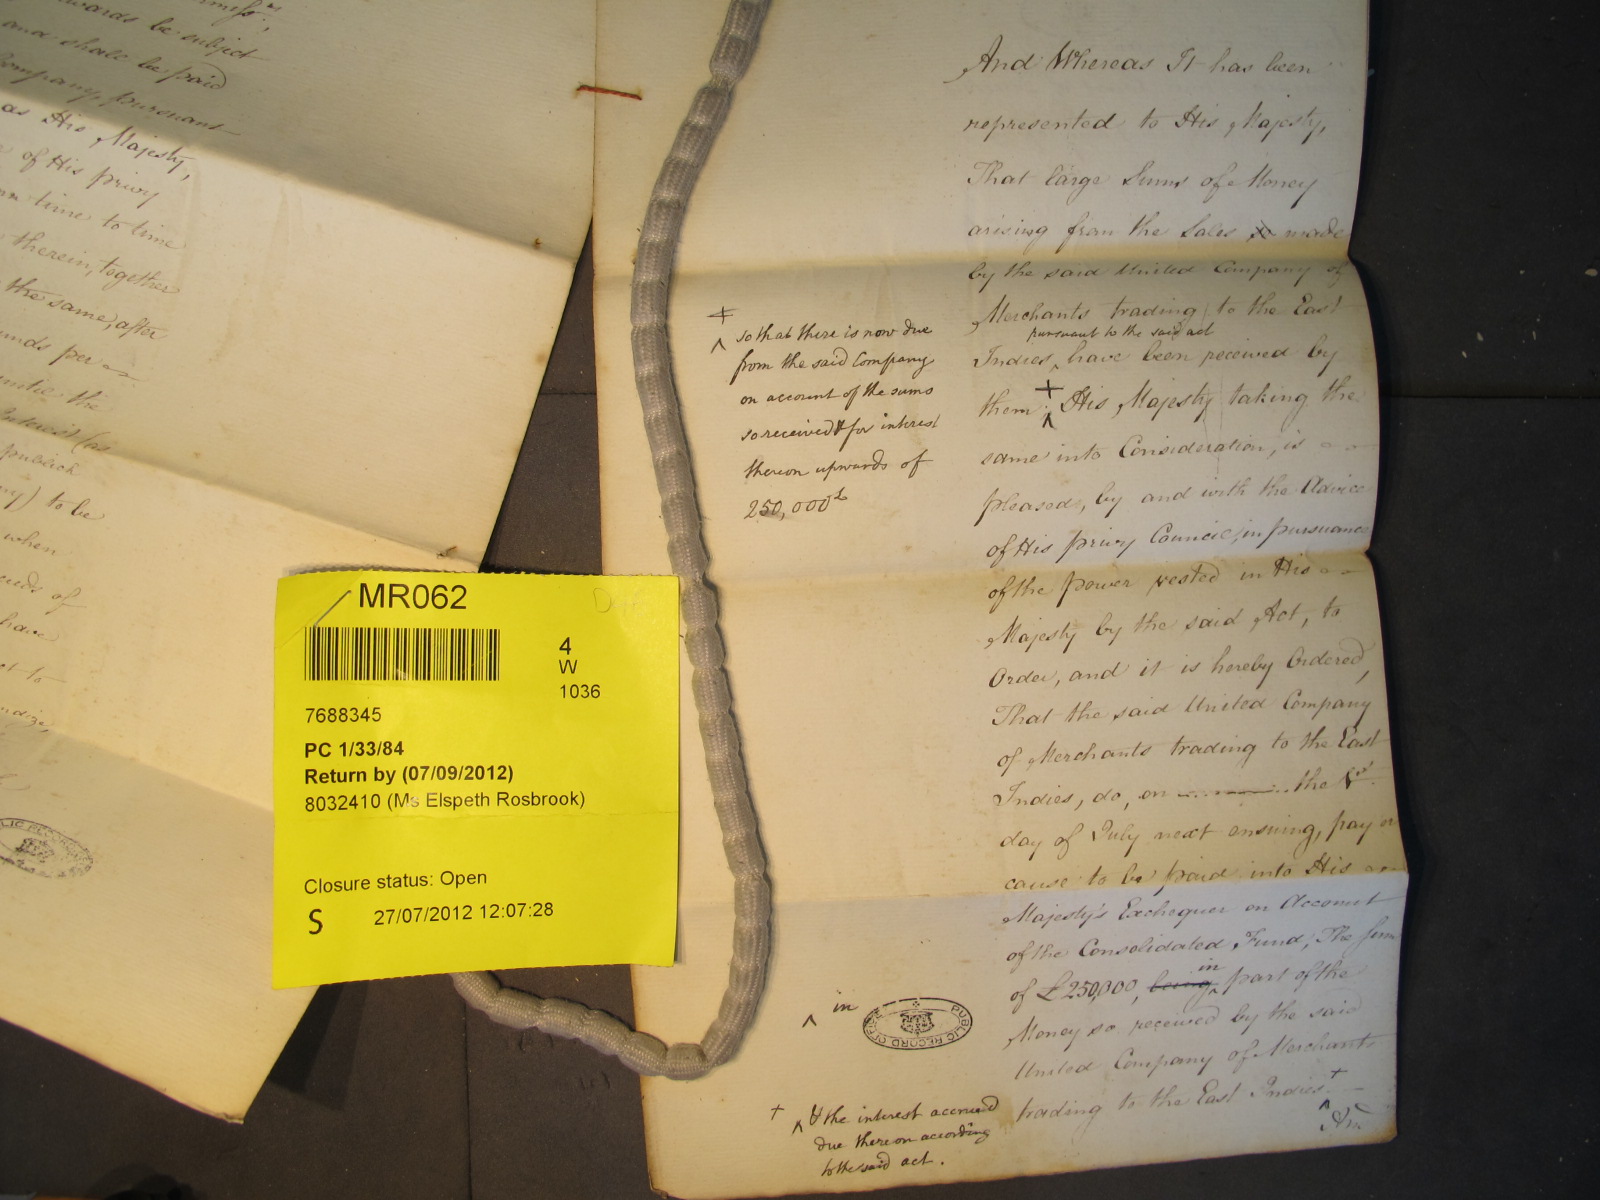 wards be subject
and shall be paid
Company, pursuant
as His Majesty,
of His privy
time to time
therein, together
the same, after
per
the
publick
to be
when
of
have
to
And Whereas It has been
represented to His Majesty,
That large Sums of Money
arising from the Sales made
by the said United Company of
Merchants trading to the East
pursuant to the said act
Indies, have been received by
them. His Majesty taking the
same into Consideration, is
pleased, by and with the Advice
of His privy Council, in pursuance
of the power vested in His
Majesty by the said Act, to
Order, and it is hereby Ordered,
That the said United Company
of Merchants trading to the East
Indies, do, on the
day of July next ensuing, pay or
cause to be paid into His
Majesty's Exchequer on Account
of the Consolidated Fund, The Sum
in
of £250,000, being part of the
Money so received by the said
United Company of Merchants
trading to the East Indies +
+
so that there is now due
from the said Company
on account of the sums
so received & for interest
thereon upwards of
250,000£
in
PUBLIC RECORD OFFICE
+ & the interest accrued
due thereon according
to the said act.
MR062
4
W
1036
7688345
PC 1/33/84
Return by (07/09/2012)
8032410 (Ms Elspeth Rosbrook)
Closure status: Open
S 27/07/2012 12:07:28